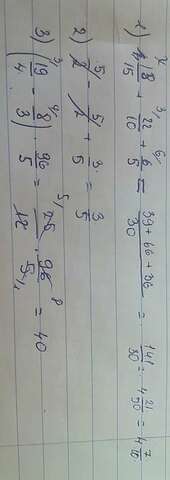 1) /15 + 22/10 + 6/5 = (39+66+36)/30 = 141/30 = 4 21/30 = 4 7/10
2) + 3/5 = 3/5
3) (19/4 - 8/3) · 96/5 = 25/12 · 96/5 = 40